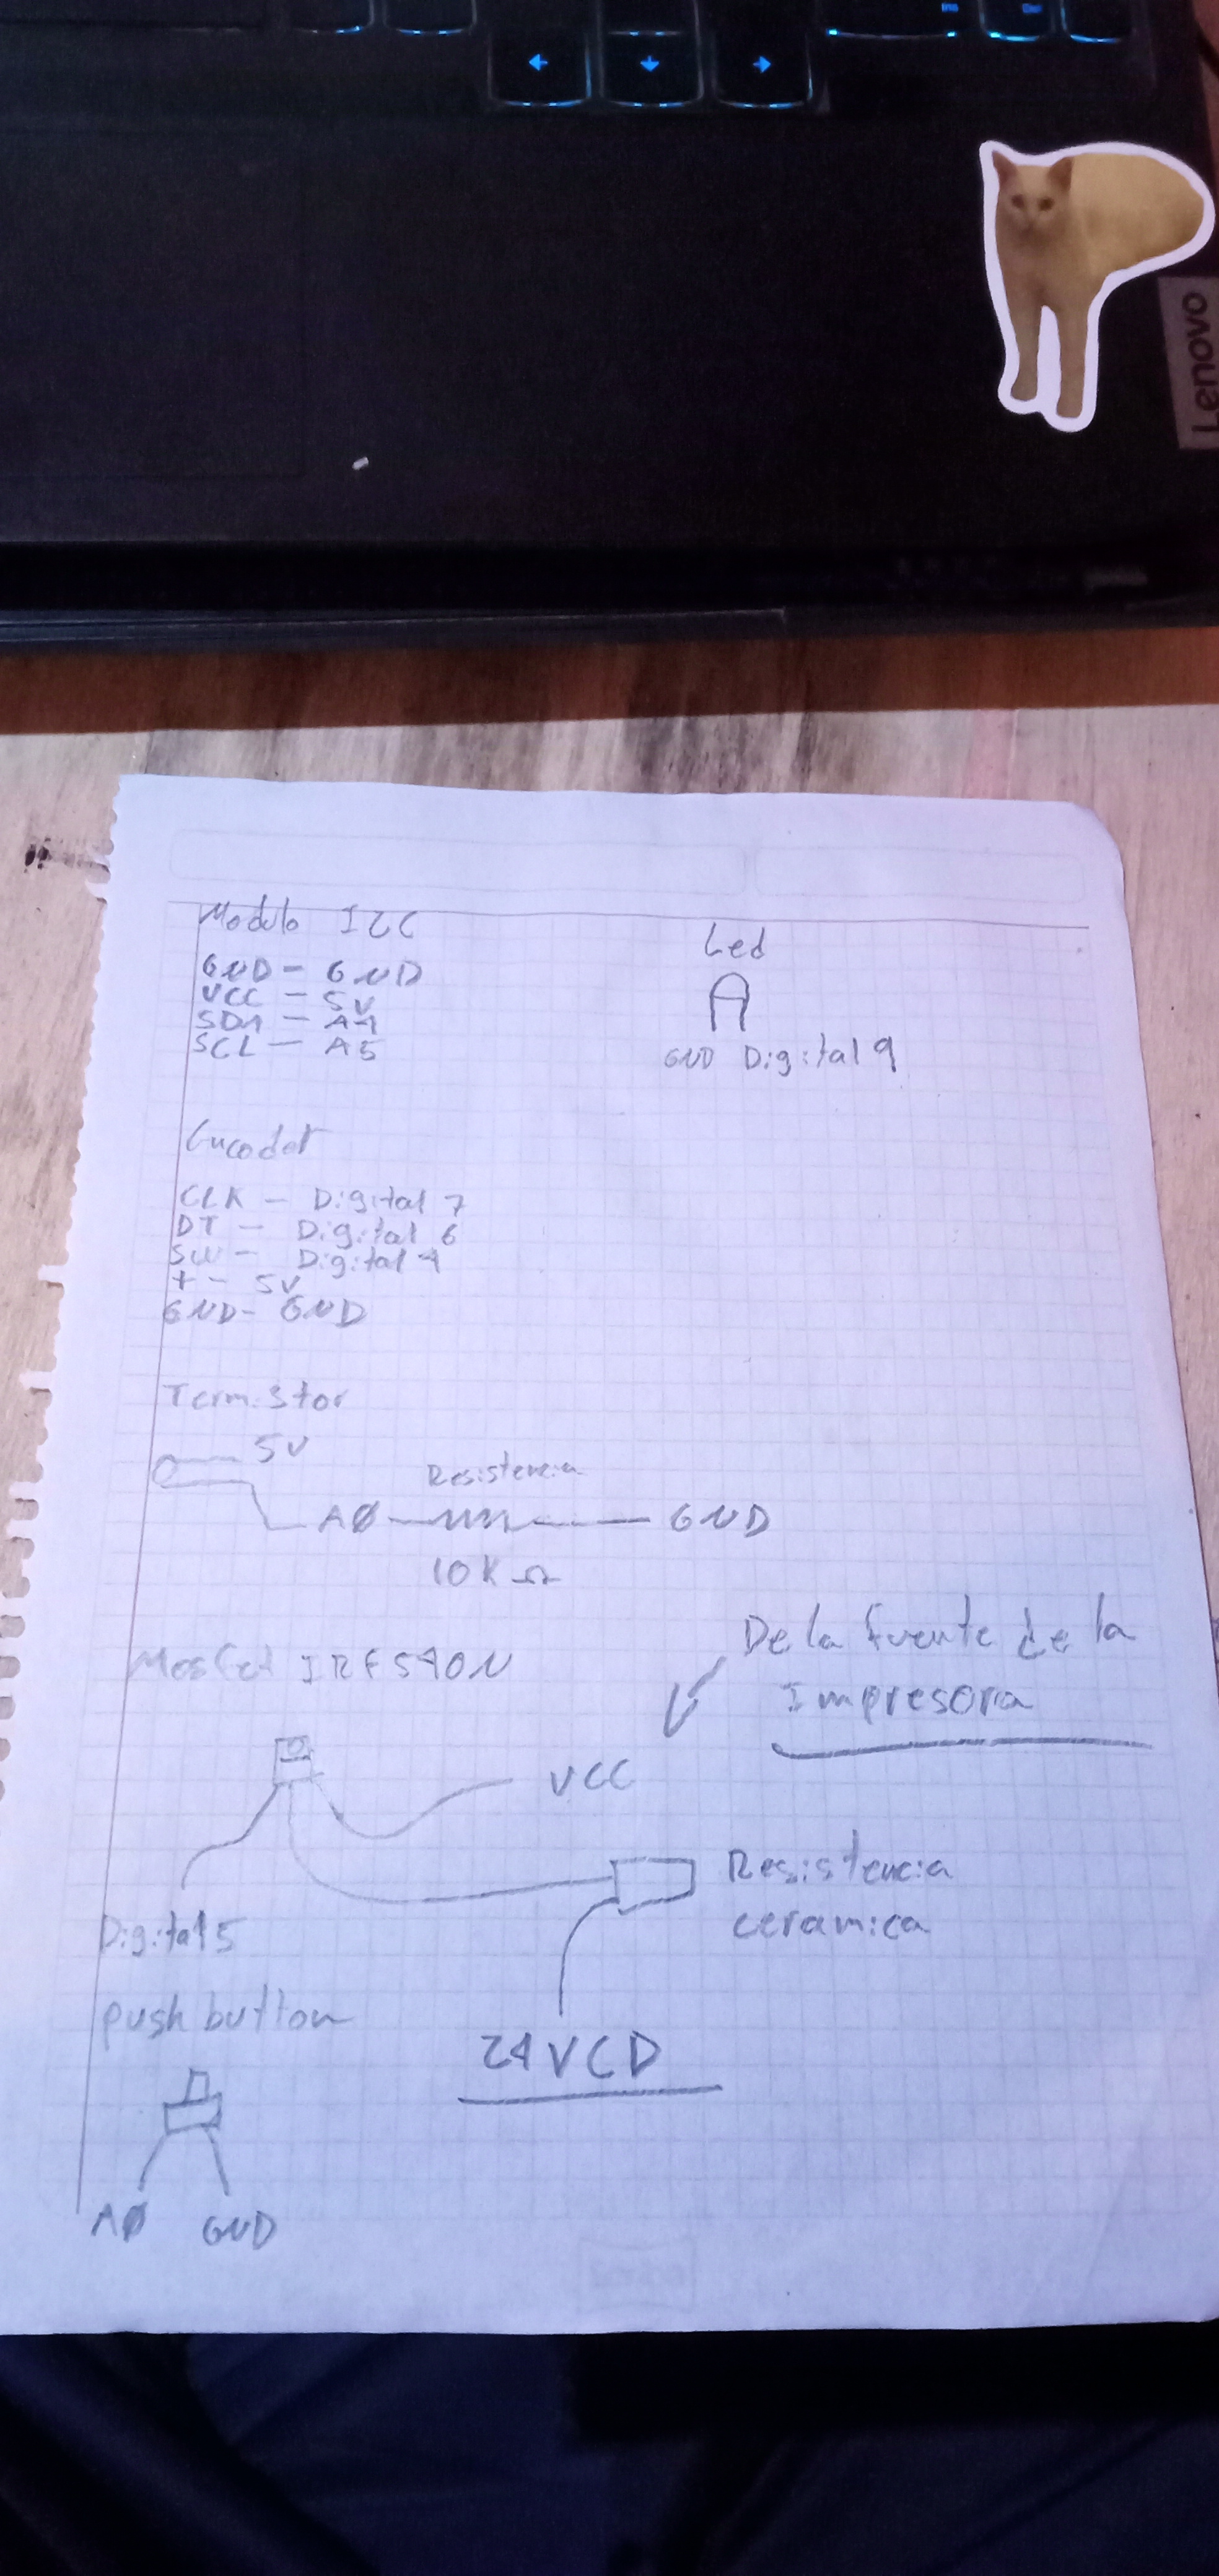 Ins
Del
Lenovo
Modulo I2C
GND - GND
VCC - 5V
SDA - A4
SCL - A5
Led
GND Digital 9
Encoder
CLK - Digital 7
DT - Digital 6
SW - Digital 4
+ - 5V
GND - GND
Termistor
5V
Resistencia
AØ
GND
10K Ω
Mosfet IRF540N
De la fuente de la
Impresora
VCC
Resistencia
ceramica
Digital 5
24 VCD
push button
AØ GND